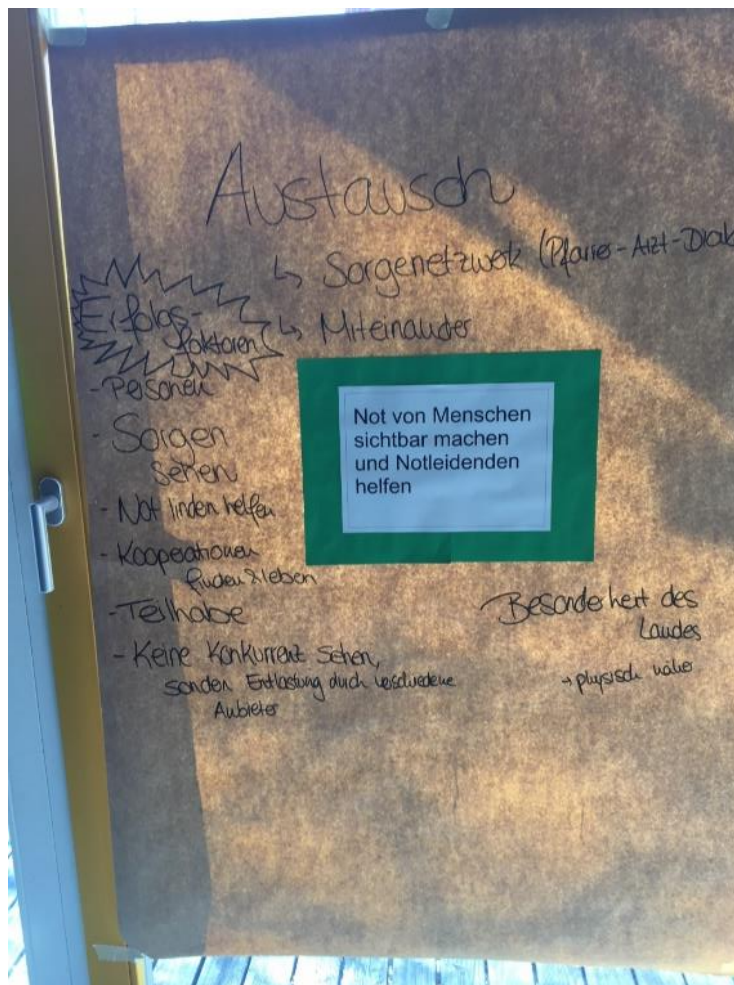 Austausch
↳ Sorgenetzwerk (Pfarrer-Arzt-Diak
↳ Miteinander
Erfolgs-
faktoren
- Personen
- Sorgen
sehen
- Not linden helfen
- Kooperationen
finden & leben
- Teilhabe
- Keine Konkurrenz sehen,
sondern Entlastung durch verschiedene
Anbieter
Not von Menschen
sichtbar machen
und Notleidenden
helfen
Besonderheit des
Landes
→ physisch näher